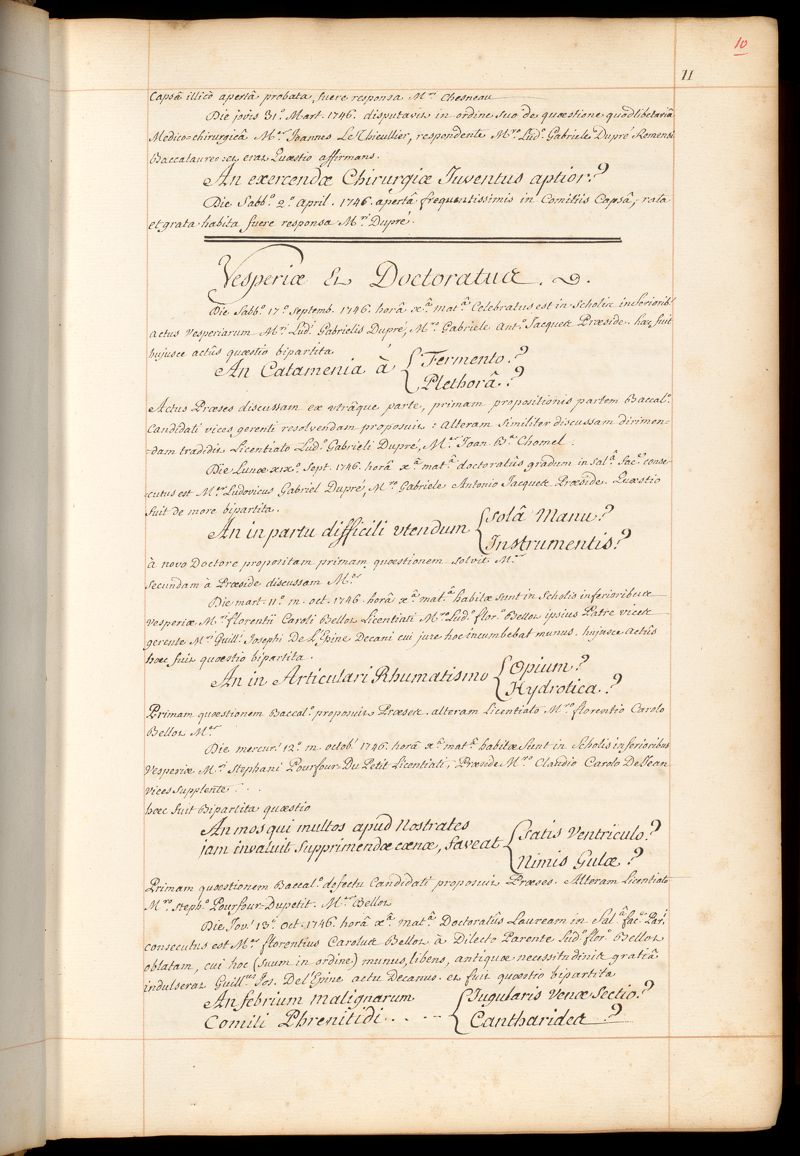 10
11
Capsâ illicò apertâ probata, fuere responsa Mri Chesneau
Die jovis 31.° Mart. 1746. disputavit in ordine suo de quæstione quodlibetariâ
Medico=chirurgicâ Mer Joannes Le Thieullier, respondente Mro Lud.° Gabriele Dupré Remensi
Baccalaureo; et erat Quæstio affirmans.
An exercendæ Chirurgiæ Juventus aptior.?
Die Sabb.° 2.° april. 1746. apertâ frequentissimis in Comitiis Capsâ, rata
et grata habita fuere responsa Mri Dupré.
Vesperiæ Et Doctoratus.
Die Sabb.° 17.° Septemb. 1746. horâ xa. mata. Celebratus est in Scholis inferiorib.
Actus Vesperiarum Mri Lud. Gabrielis Dupré, Mro Gabriele Ant.° Jacques Præside. hæc fuit
hujusce actûs quæstio bipartita
An Catamenia à { Fermento.?
Plethorâ.?
Actus Præses discussam ex utrâque parte, primam propositionis partem Baccal.°
Candidati vices gerenti resolvendam proposuit: Alteram similiter discussam dirimen-
-dam tradidit Licentiato Lud.° Gabrieli Dupré, Mer Joan. Bta Chomel.
Die Lunæ xix.° Sept. 1746. horâ xa. mata. doctoratûs gradum in Sala. Fac. conse-
cutus est Mer Ludovicus Gabriel Dupré, Mro Gabriele Antonio Jacques Præside. Quæstio
fuit de more bipartita.
An in partu difficili utendum { Solâ Manu?
Instrumentis?
à novo Doctore propositam primam quæstionem solvit Mer
Secundam à Præside discussam Mer
Die mart. 11.° m. oct. 1746. horâ xa. mata. habitæ sunt in Scholis inferioribus
Vesperiæ Mri florentii Caroli Bellot Licentiati Mro Lud.° flor.° Bellot ipsius Patre vices
gerente Mri Guill. Josephi De L'Epine Decani cui jure hoc incumbebat munus. hujusce Actûs
hæc fuit quæstio bipartita.
An in Articulari Rhumatismo { Opium?
Hydrotica.?
Primam quæstionem Baccal.° proposuit Præses. alteram Licentiato Mro florentio Carolo
Bellot Mer
Die mercur. 12.° m. octob. 1746. horâ xa. mata. habitæ Sunt in Scholis inferioribus
Vesperiæ Mri Stephani Pourfour-Du Petit Licentiati, Præside Mro Claudio Carolo De Jean
vices supplente . . .
hæc fuit Bipartita quæstio
An mos qui multos apud Nostrates
jam invaluit Supprimendæ cænæ, faveat { Satis Ventriculo.?
Nimis Gulæ?
Primam quæstionem Baccal.° defectu Candidati proposuit Præses. Alteram Licentiato
Mro Steph.° Pourfour-Dupetit. Mer Bellot
Die Jov. 13.° Oct. 1746. horâ xa. mata. Doctoratûs Lauream in Sala. fac. Par.
consecutus est Mer florentius Carolus Bellot à Dilecto Parente Lud.° flor.° Bellot
oblatam, cui hoc (suum in ordine) munus, libens, antiquæ necessitudinis gratiâ
indulserat Guill. Jos. Del'Epine actu Decanus. et fuit quæstio bipartita
An febrium malignarum
Comiti Phrenitidi . . . . { Jugularis Venæ Sectio.?
Cantharides?